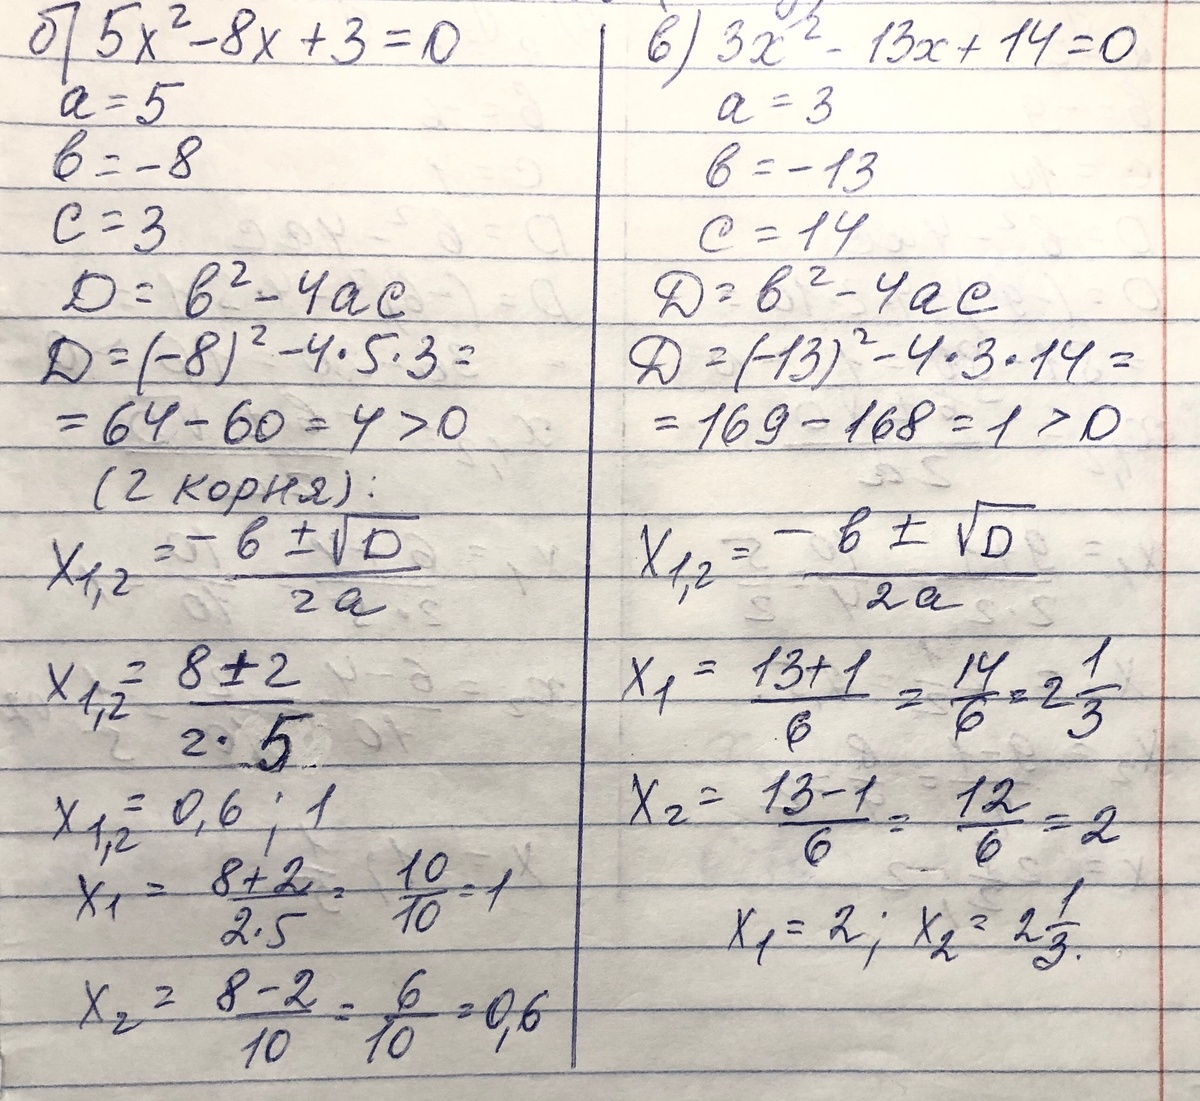 б) 5x² - 8x + 3 = 0
a = 5
в = -8
c = 3
D = в² - 4ac
D = (-8)² - 4·5·3 =
= 64 - 60 = 4 > 0
(2 корня):
x₁,₂ = (-в ± √D)/(2a)
x₁,₂ = (8 ± 2)/(2·5)
x₁,₂ = 0,6 ; 1
x₁ = (8+2)/(2·5) = 10/10 = 1
x₂ = (8-2)/10 = 6/10 = 0,6
в) 3x² - 13x + 14 = 0
a = 3
в = -13
c = 14
D = в² - 4ac
D = (-13)² - 4·3·14 =
= 169 - 168 = 1 > 0
x₁,₂ = (-в ± √D)/(2a)
x₁ = (13+1)/6 = 14/6 = 2 1/3
x₂ = (13-1)/6 = 12/6 = 2
x₁ = 2; x₂ = 2 1/3.